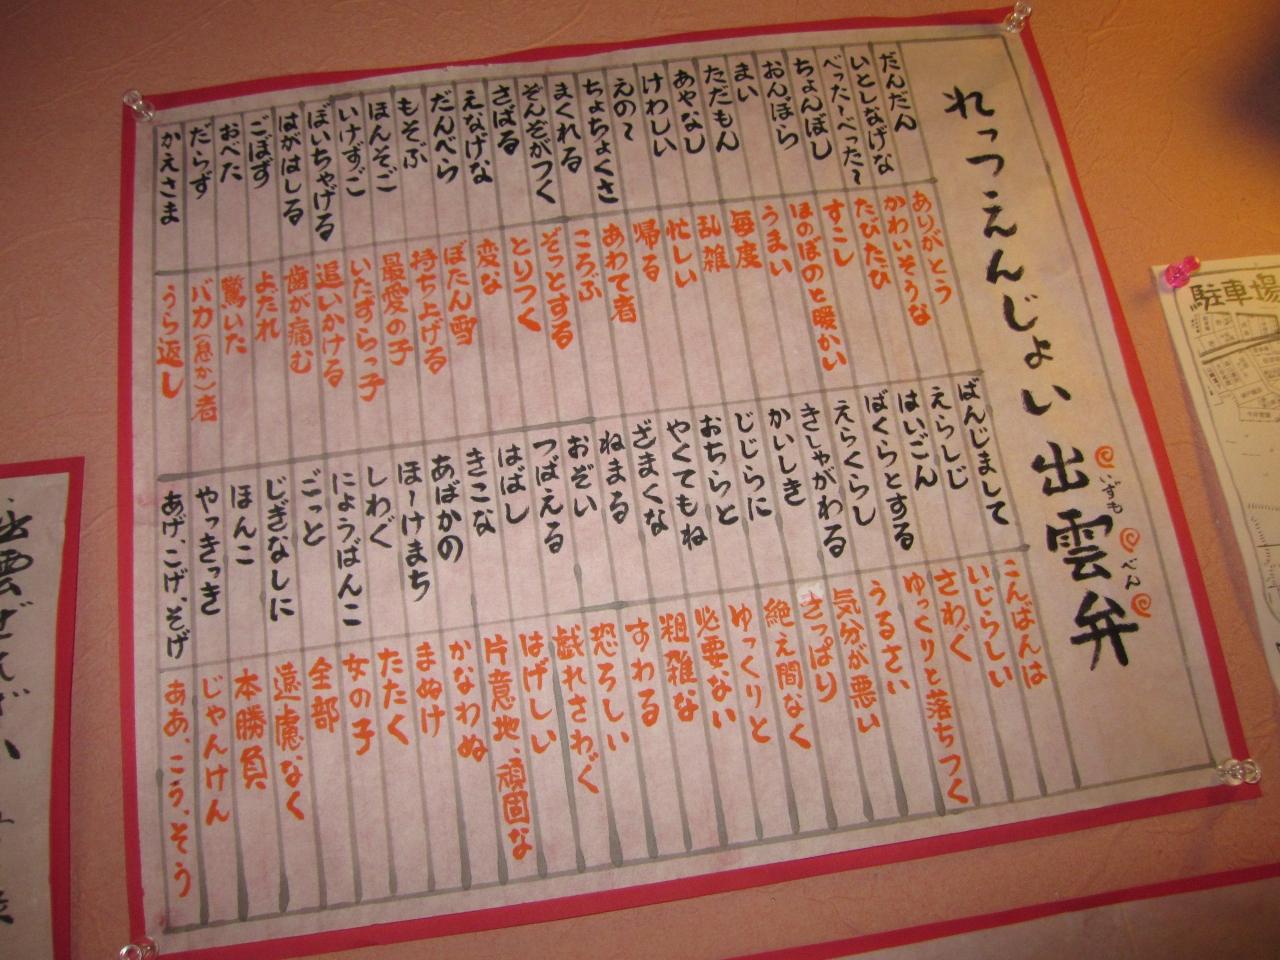 れっつえんじょい 出雲弁
いずも べん
だんだん
ありがとう
いとしなげな
かわいそうな
べった〜べった〜
たびたび
ちょんぼし
すこし
おんぼら
ほのぼのと暖かい
まい
うまい
ただもん
毎度
あやなし
乱雑
けわしい
忙しい
えの〜
帰る
ちょちょくさ
あわて者
まくれる
ころぶ
ぞんぞがつく
ぞっとする
さばる
とりつく
えなげな
変な
だんべら
ぼたん雪
もそぶ
持ち上げる
ほんそご
最愛の子
いけずご
いたずらっ子
ぼいちゃげる
追いかける
はがはしる
歯が痛む
ごぼず
よたれ
おべた
驚いた
だらず
バカ(愚か)者
かえさま
うら返し
ばんじまして
こんばんは
えらしじ
いじらしい
はいごん
さわぐ
ばくらとする
ゆっくりと落ちつく
えらくらし
うるさい
きしゃがわる
気分が悪い
かいしき
さっぱり
じじらに
絶え間なく
おちらと
ゆっくりと
やくてもね
必要ない
ざまくな
粗雑な
ねまる
すわる
おぞい
恐ろしい
つばえる
戯れさわぐ
はばし
はげしい
きこな
片意地、頑固な
あばかの
かなわぬ
ほーけまち
まぬけ
しわぐ
たたく
にょうばんこ
女の子
ごっと
全部
じぎなしに
遠慮なく
ほんこ
本勝負
やっきっき
じゃんけん
あげ、こげ、そげ
ああ、こう、そう
駐車場